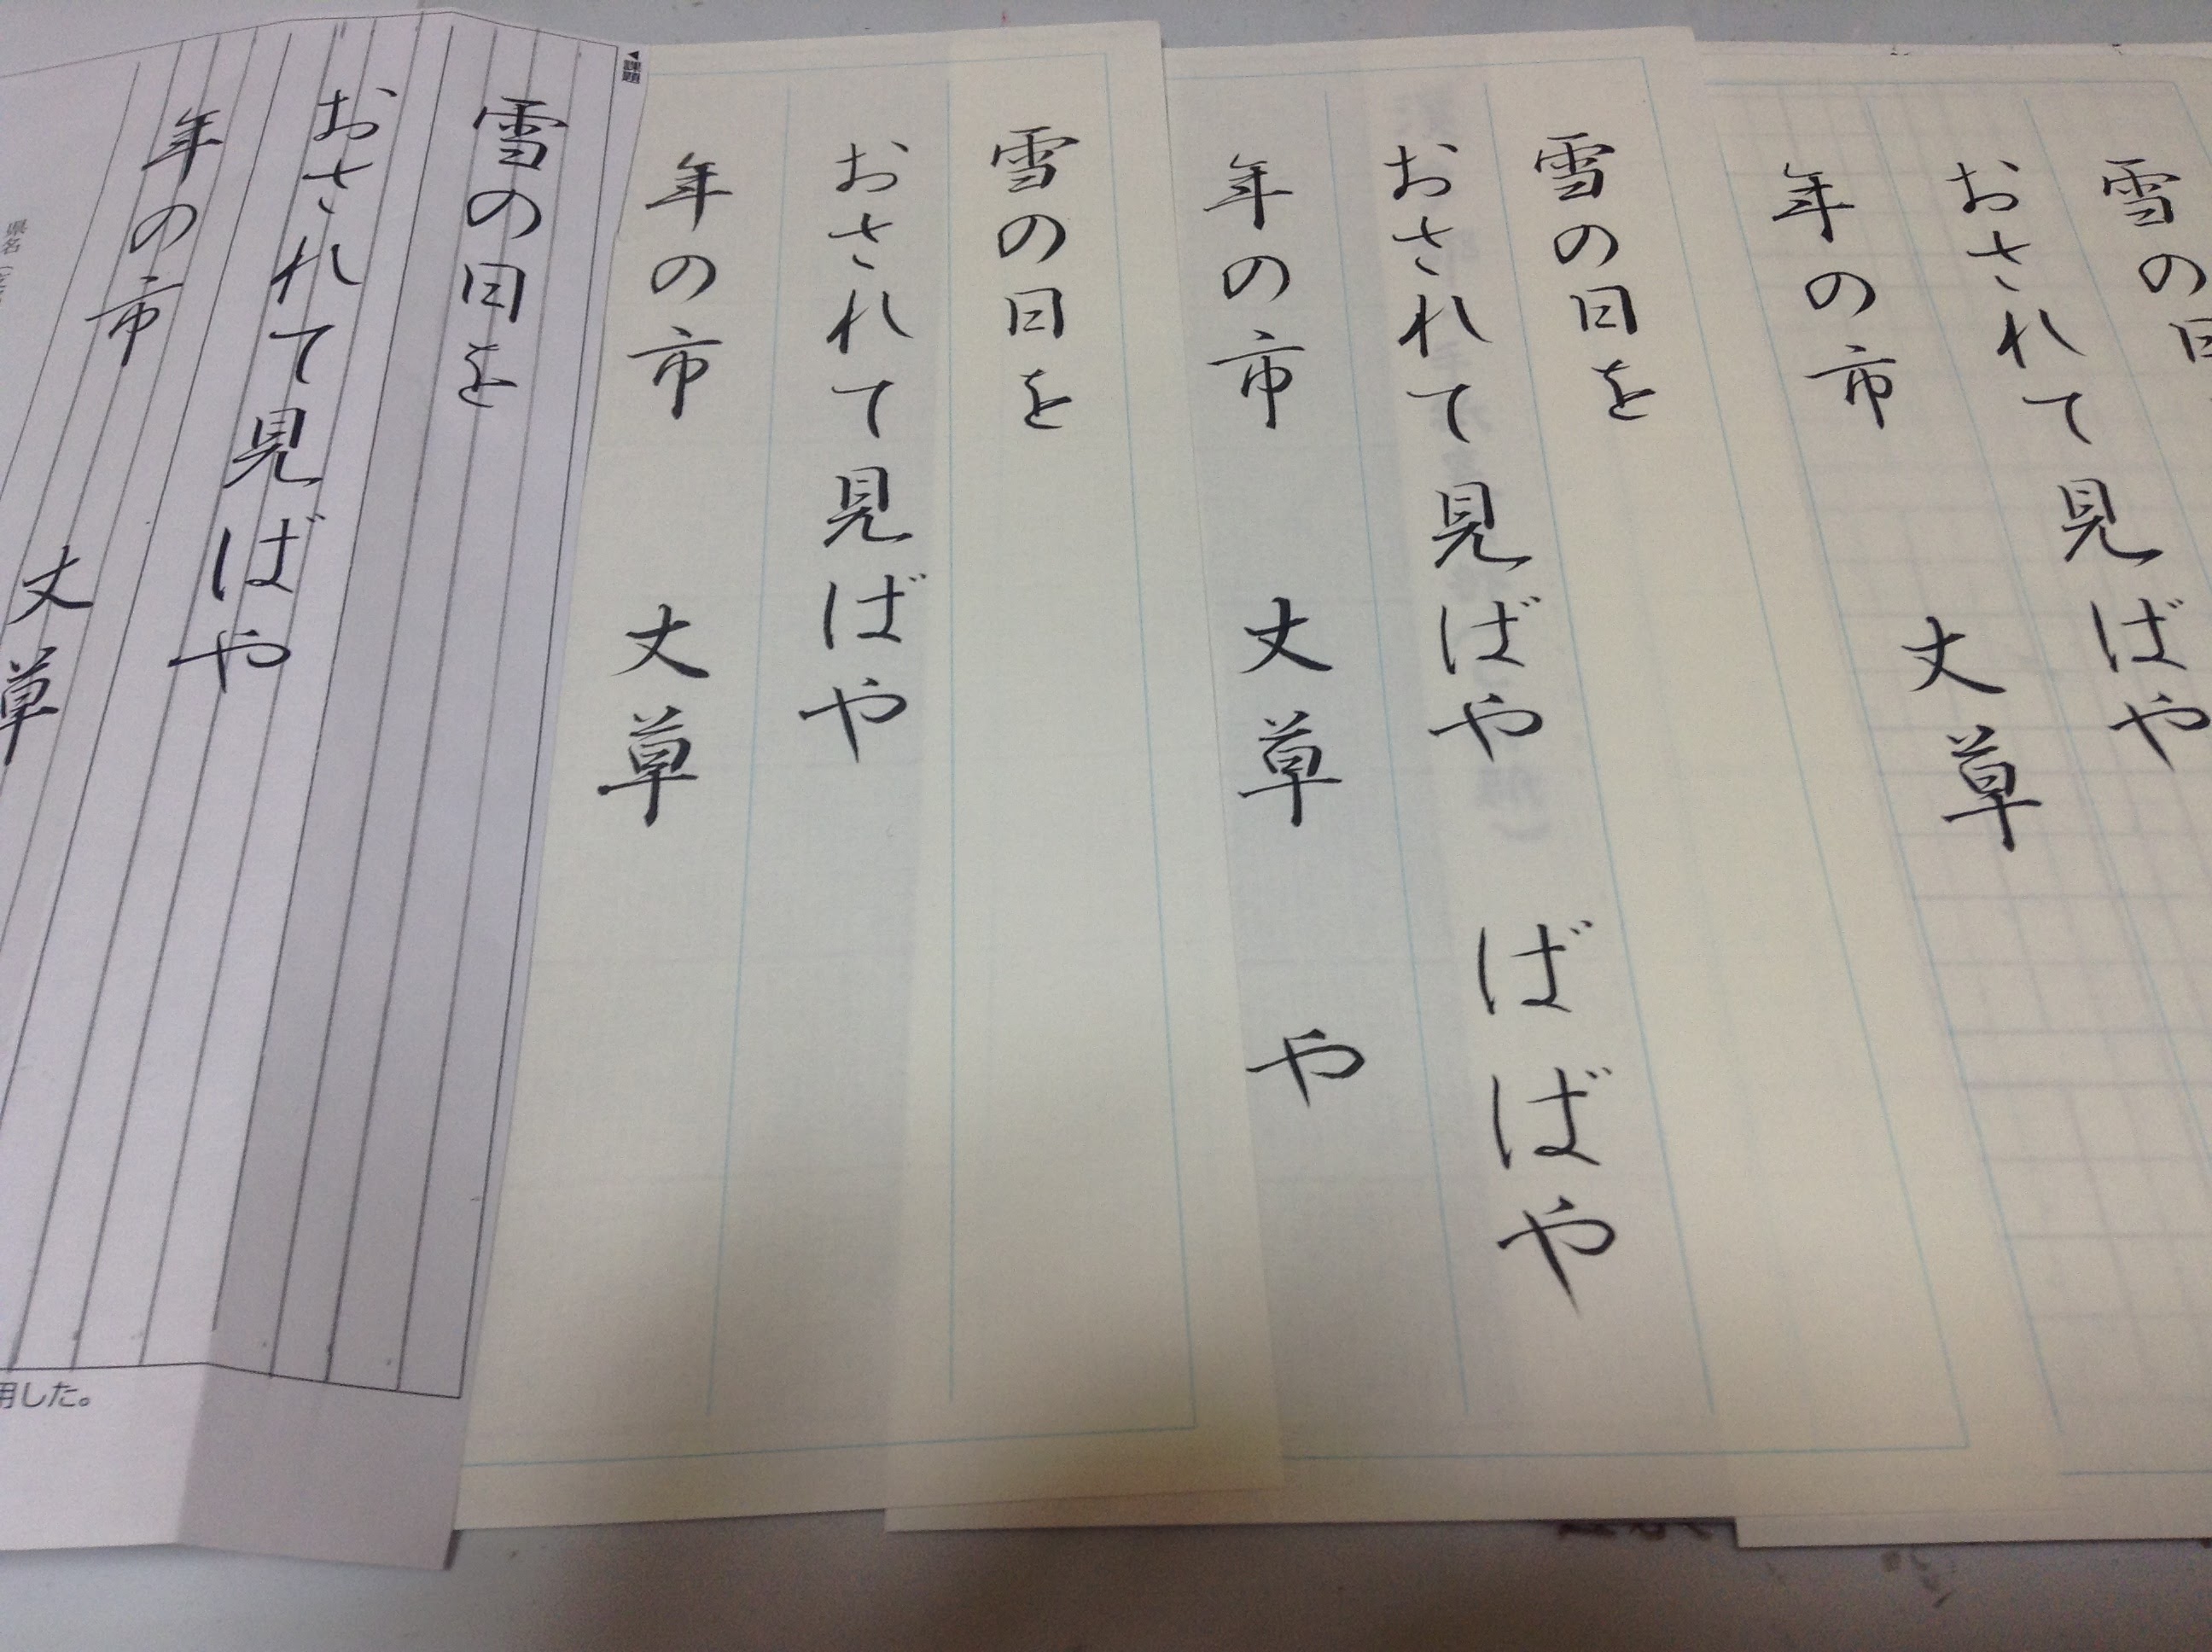 雪の日
おされて見ばや
年の市　丈草
雪の日を
おされて見ばや　ば　ばや
年の市　丈草　や
雪の日を
おされて見ばや
年の市　丈草
◀課題
雪の日を
おされて見ばや
年の市　丈草
県名
用した。